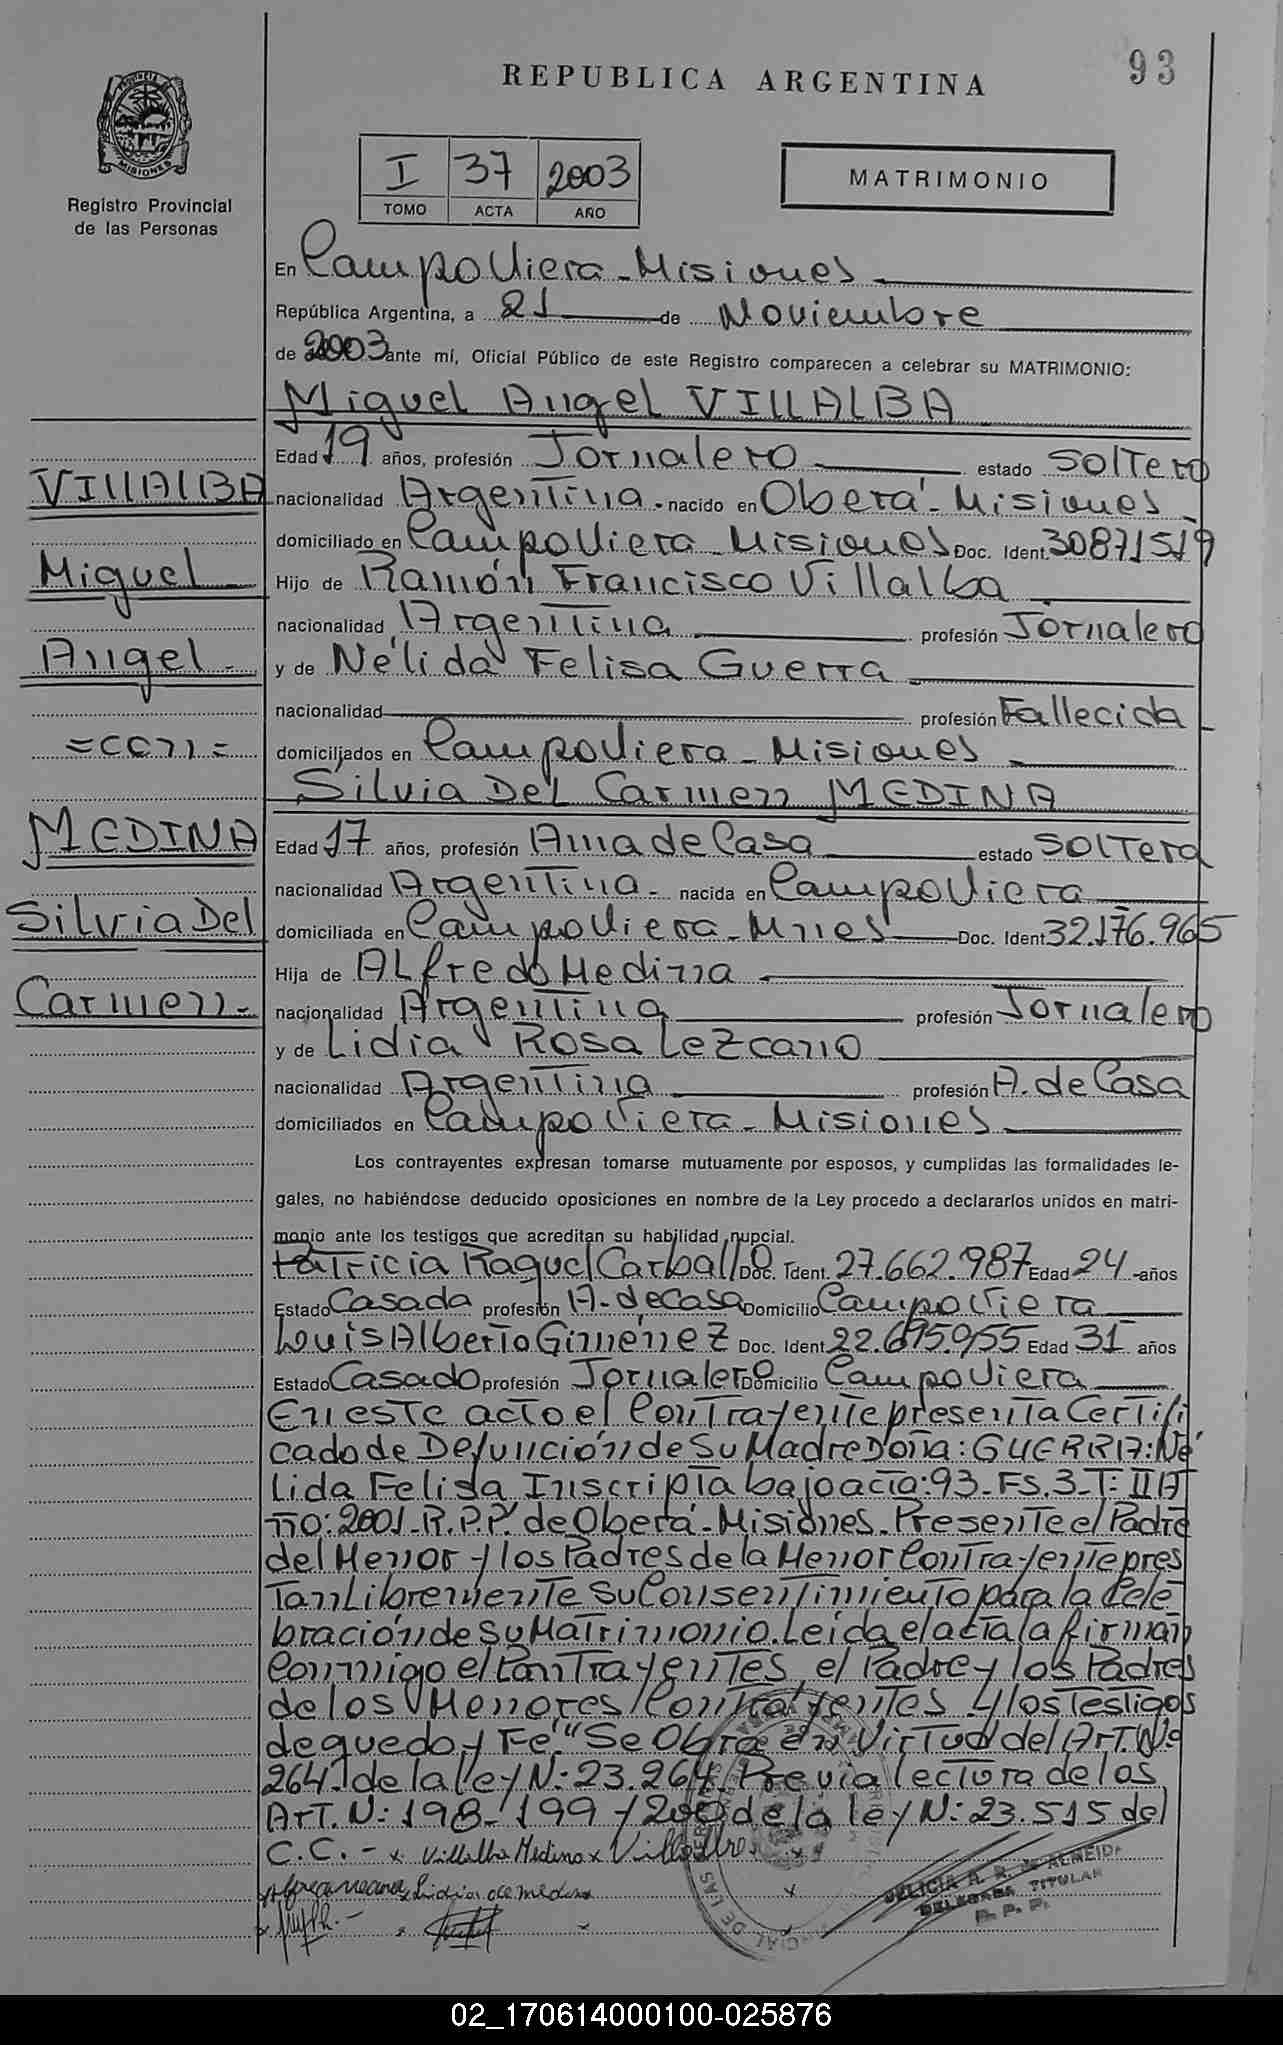 93
REPUBLICA ARGENTINA
PROVINCIA
MISIONES
Registro Provincial
de las Personas
I 37 2003
TOMO ACTA AÑO
MATRIMONIO
En Campo Viera - Misiones
República Argentina, a 21 de Noviembre
de 2003 ante mí, Oficial Público de este Registro comparecen a celebrar su MATRIMONIO:
Miguel Angel VILLALBA
Edad 19 años, profesión Jornalero estado Soltero
VILLALBA
nacionalidad Argentina - nacido en Oberá - Misiones
domiciliado en Campo Viera - Misiones Doc. Ident. 30871519
Miguel
Hijo de Ramón Francisco Villalba
nacionalidad Argentina profesión Jornalero
Angel -
y de Nélida Felisa Guerra
nacionalidad profesión Fallecida
= con =
domiciliados en Campo Viera - Misiones
Silvia Del Carmen MEDINA
MEDINA
Edad 17 años, profesión Ama de Casa estado Soltera
nacionalidad Argentina - nacida en Campo Viera
Silvia Del
domiciliada en Campo Viera - Mnes Doc. Ident. 32.176.965
Hija de Alfredo Medina
Carmen -
nacionalidad Argentina profesión Jornalero
y de Lidia Rosa Lezcano
nacionalidad Argentina profesión A. de Casa
domiciliados en Campo Viera - Misiones
Los contrayentes expresan tomarse mutuamente por esposos, y cumplidas las formalidades le-
gales, no habiéndose deducido oposiciones en nombre de la Ley procedo a declararlos unidos en matri-
monio ante los testigos que acreditan su habilidad nupcial.
Patricia Raquel Carballo Doc. Ident. 27.662.987 Edad 24 años
Estado Casada profesión A. de Casa Domicilio Campo Viera
Luis Alberto Giménez Doc. Ident. 22.695.955 Edad 31 años
Estado Casado profesión Jornalero Domicilio Campo Viera
En este acto el Contrayente presenta Certifi
cado de Defunción de Su Madre Doña: GUERRA: Né
lida Felisa Inscripta bajo acta: 93 - Fs. 3 - T: II A
ño: 2001 - R.P.P. de Oberá - Misiones. Presente el Padre
del Menor y los Padres de la Menor Contrayente pres
tan Libremente su Consentimiento para la Cele
bración de su Matrimonio. Leída el acta la firman
Conmigo el Contrayentes el Padre y los Padres
de los Menores Contrayentes y los Testigos
de que doy Fe. "Se Obra en Virtud del Art. Nº
264 - de la ley N: 23.264. Previa lectura de los
Art. N: 198 - 199 y 200 de la ley N: 23.515 del
C.C. - x Villalba Medina x
Lidia de medina
DELICIA A. R. de ALMEIDA
DELEGADA TITULAR
R. P. P.
02_170614000100-025876